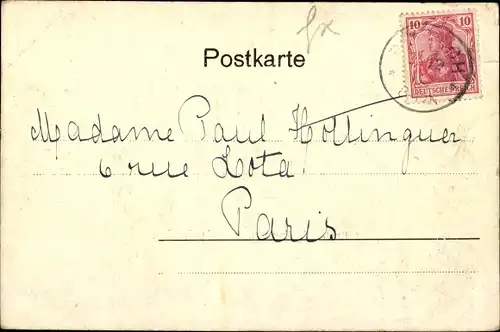 10 10
DEUTSCHES REICH
Postkarte
Madame Paul Hottinguer
6 rue Lota
Paris